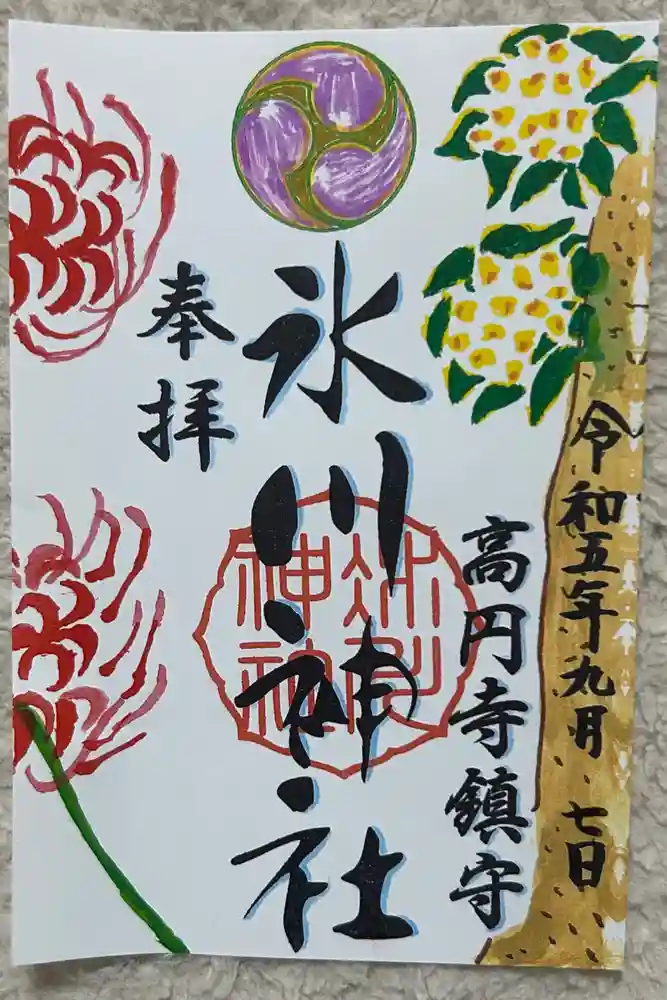 令和五年九月 七日
高円寺鎮守
氷川神社
奉拝